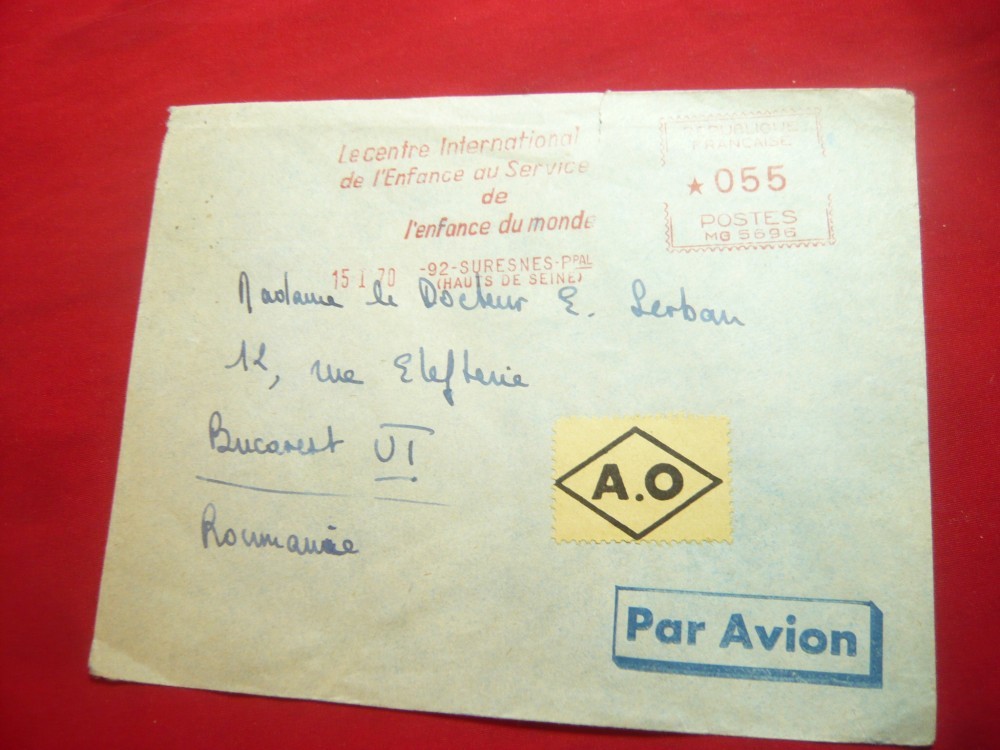 Le centre International
de l'Enfance au Service
de
l'enfance du monde
REPUBLIQUE
FRANCAISE
★ 055
POSTES
MG 5696
15 1 70 -92-SURESNES-PPAL
(HAUTS DE SEINE)
Madame le Docteur E. Serban
12, rue Elefterie
Bucarest VI
Roumanie
A.O
Par Avion